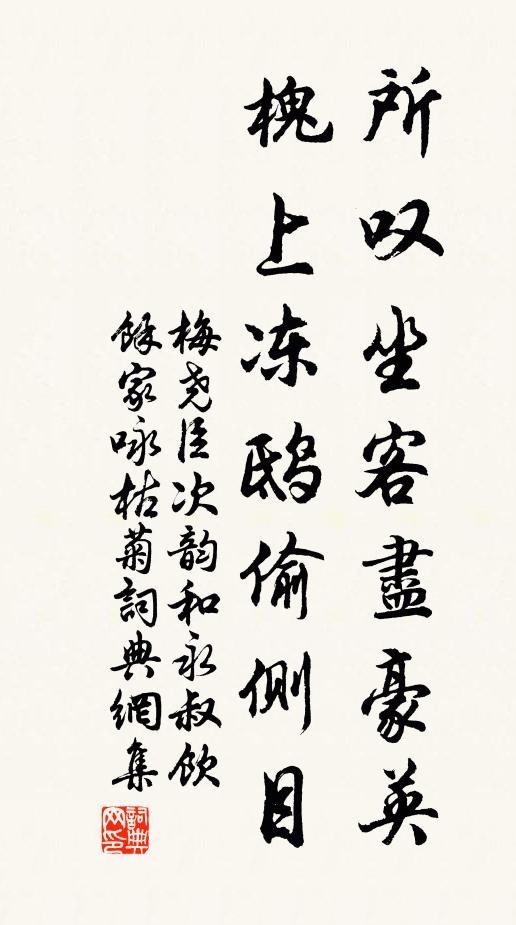 所叹坐客盡豪英
槐上冻鸱偷侧目
梅尧臣次韵和永叔饮
餘家咏枯菊詞典網集
詞典网印